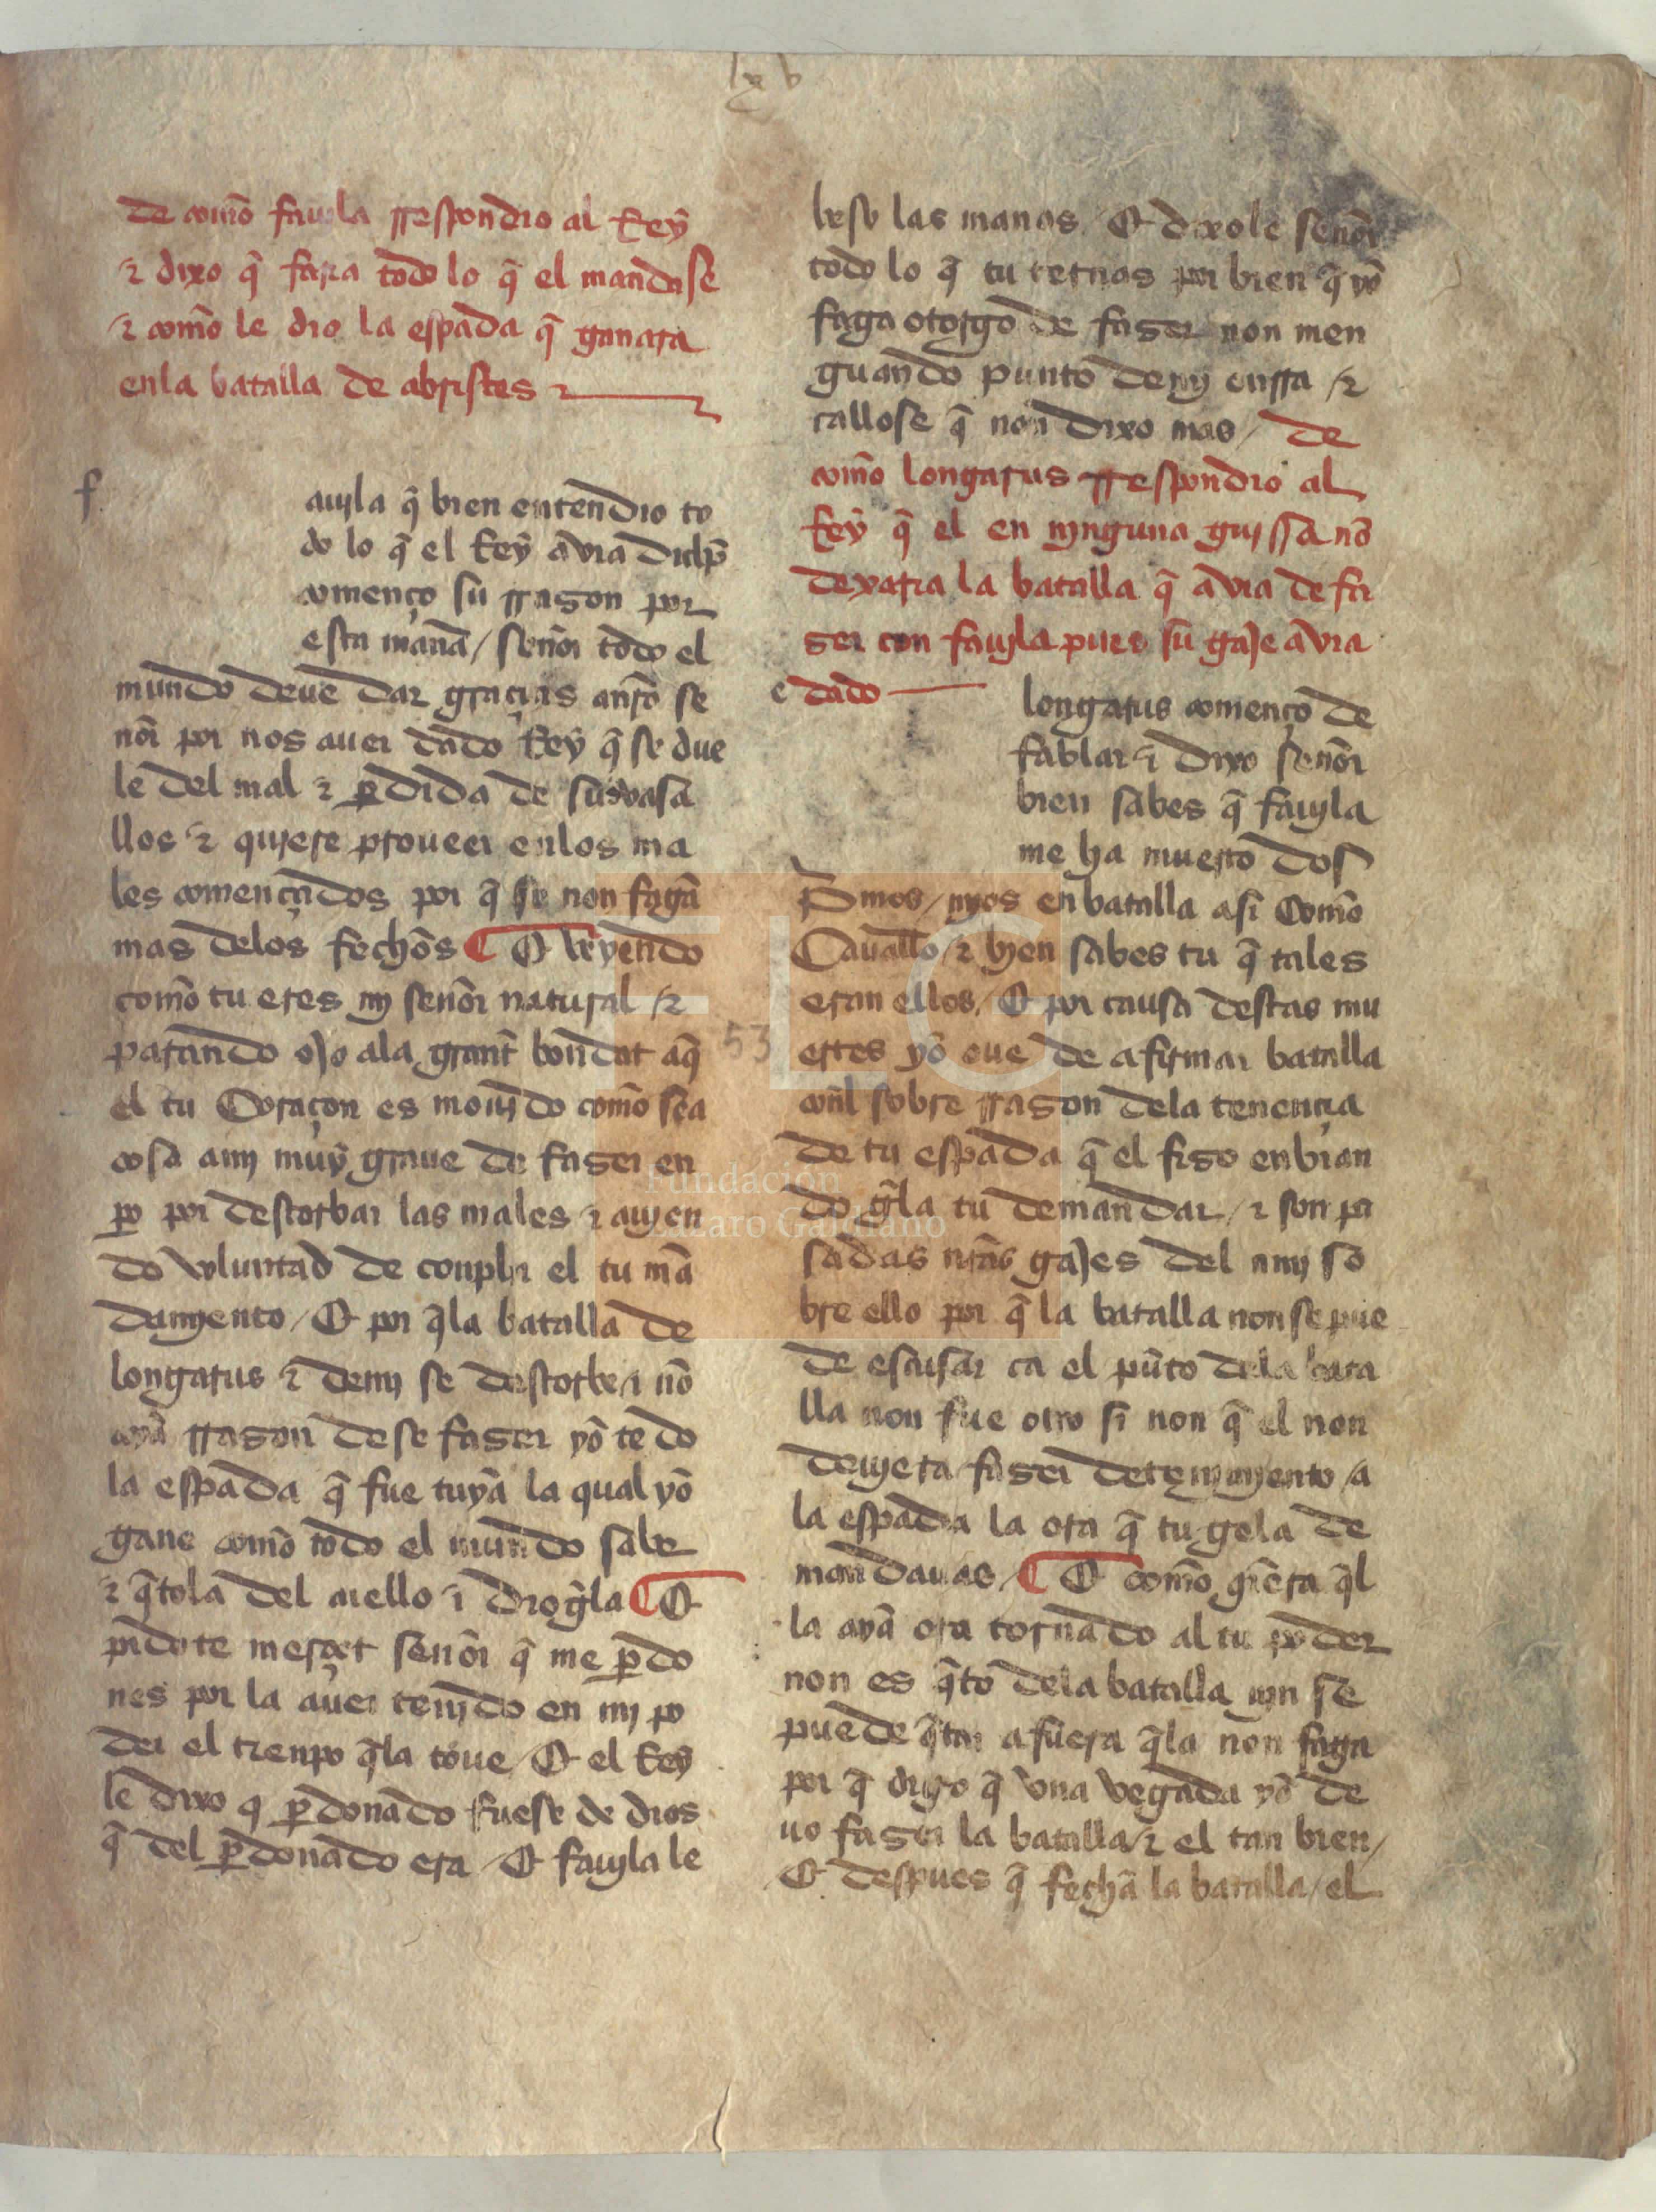 lxv
de com̃o fauila rrespondio al Rey
⁊ dixo q̃ faria todo lo q̃ el mandase
⁊ com̃o le dio la espada q̃ ganara
enla batalla de abristes ⁊
f
auyla q̃ bien entendio to
do lo q̃ el Rey avia dich̃
començo su rrason por
esta man̄a / sen̄or todo el
mundo deue dar graçias anr̄o se
n̄or por nos auer dado Rey q̃ se due
le del mal ⁊ ꝑdida de sus vasa
llos ⁊ quiere proueer enlos ma
les començados por q̃ se non fagā
mas delos fechos ¶ Et veyendo
com̃o tu eres my sen̄or natural / ⁊
parando ojo ala grant̃ bondat aq̃
el tu Coraçon es mouydo com̃o sea
cosa amy muy graue de faser en
ꝑo por destorbar las males ⁊ auyen
do voluntad de conplir el tu mā
damyento / Et por q̃la batalla de
longarus ⁊ demy se destorbe ⁊ nō
aya rrason de se faser yo te do
la espada q̃ fue tuya la qual yo
gane com̃o todo el mundo sabe
⁊ q̃tola del cuello ⁊ diogela ¶ Et
pidote merçet sen̄or q̃ me ꝑdo
nes por la auer tenydo en my po
der el tienpo q̃la toue / Et el Rey
le dixo q̃ ꝑdonado fuese de dios
q̃ del ꝑdonado era / Et fauyla le
beso las manos / Et dixole sen̄or
todo lo q̃ tu ternas por bien q̃ yo
faga otorgo de faser non men
guando punto demy onrra / ⁊
callose q̃ non dixo mas / de
com̃o longarus rrespondio al
Rey q̃ el en nynguna guyssa nō
dexaria la batalla q̃ avia de fa
ser con fauyla pues su gaje avia
e dado
longarus començo de
fablar ⁊ dixo sen̄or
bien sabes q̃ fauyla
me ha muerto dos
Pmos / myos en batalla asi Com̃o
Cauall̃o / ⁊ byen sabes tu q̃ tales
eran ellos / Et por causa destas mu
ertes yo oue de afirmar batalla
con̄l sobre rrason dela tenençia
de tu espada q̃ el fiso enbian
do gela tu demandar / ⁊ son pa
sadas nr̄as gajes del amy so
bre ello por q̃ la batalla non se pue
de escusar ca el pūto dela bata
lla non fue otro si non q̃ el non
deuyera faser detenymyento / a
la espada la ora q̃ tu gela de
mandauas / ¶ Et com̃o quiera q̃l
la aya ora tornado al tu poder
non es q̃to dela batalla nyn se
puede q̃tar afuera q̃la non faga
por q̃ digo q̃ vna vegada yo de
uo faser la batalla / ⁊ el tan bien /
Et despues q̃ fecha la batalla / el
53
FLG
Fundación
Lázaro Galdiano